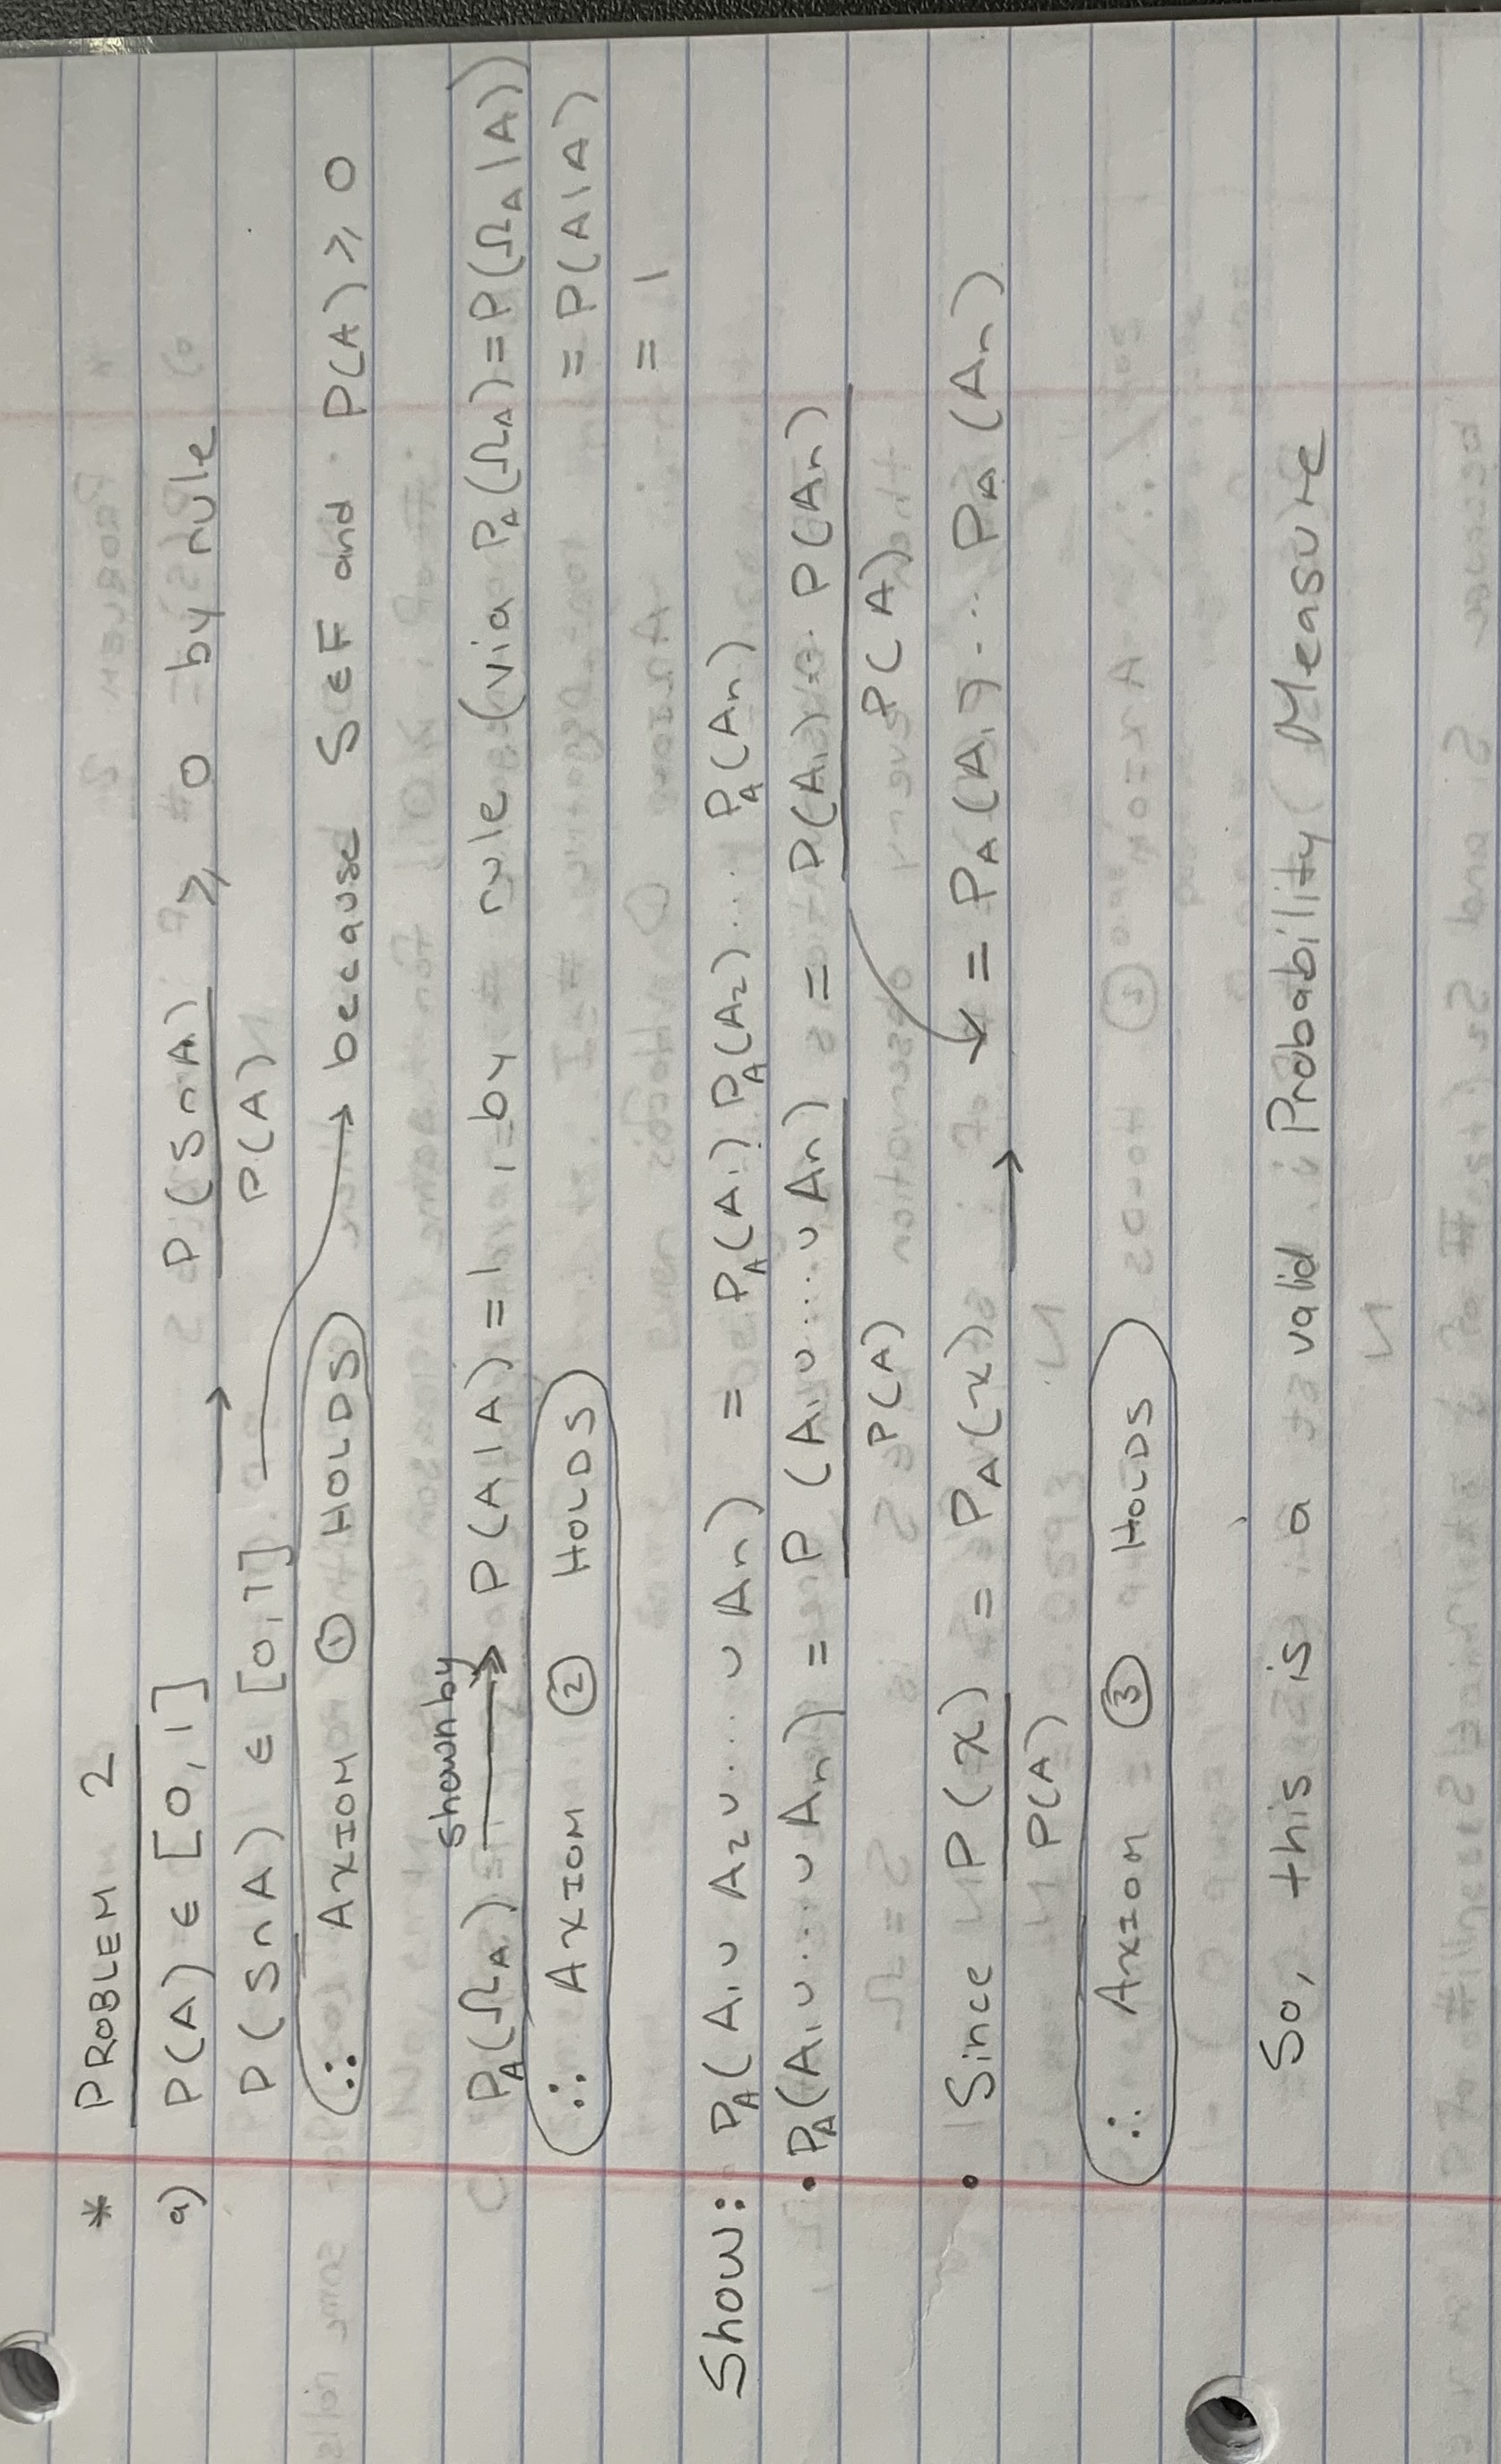 * PROBLEM 2
a) P(A) ∈ [0,1] → P(S∩A) / P(A) ≥ 0 by rule
P(S∩A) ∈ [0,1]
∴ AXIOM ① HOLDS → because S∈F and P(A) ≥ 0
P_A(Ω_A) shown by → P(A|A) = 1, by rule (via P_A(Ω_A) = P(Ω_A|A))
∴ AXIOM ② HOLDS = P(A|A)
= 1
Show: P_A(A₁ ∪ A₂ ∪ ... ∪ Aₙ) = P_A(A₁) P_A(A₂) ... P_A(Aₙ)
• P_A(A₁ ∪ ... ∪ Aₙ) = P(A₁ ∪ ... ∪ Aₙ) / P(A) = P(A₁) ... P(Aₙ) / P(A)
• Since P(x) / P(A) = P_A(x) → = P_A(A₁) ... P_A(Aₙ)
∴ AXIOM ③ HOLDS
So, this is a valid Probability Measure